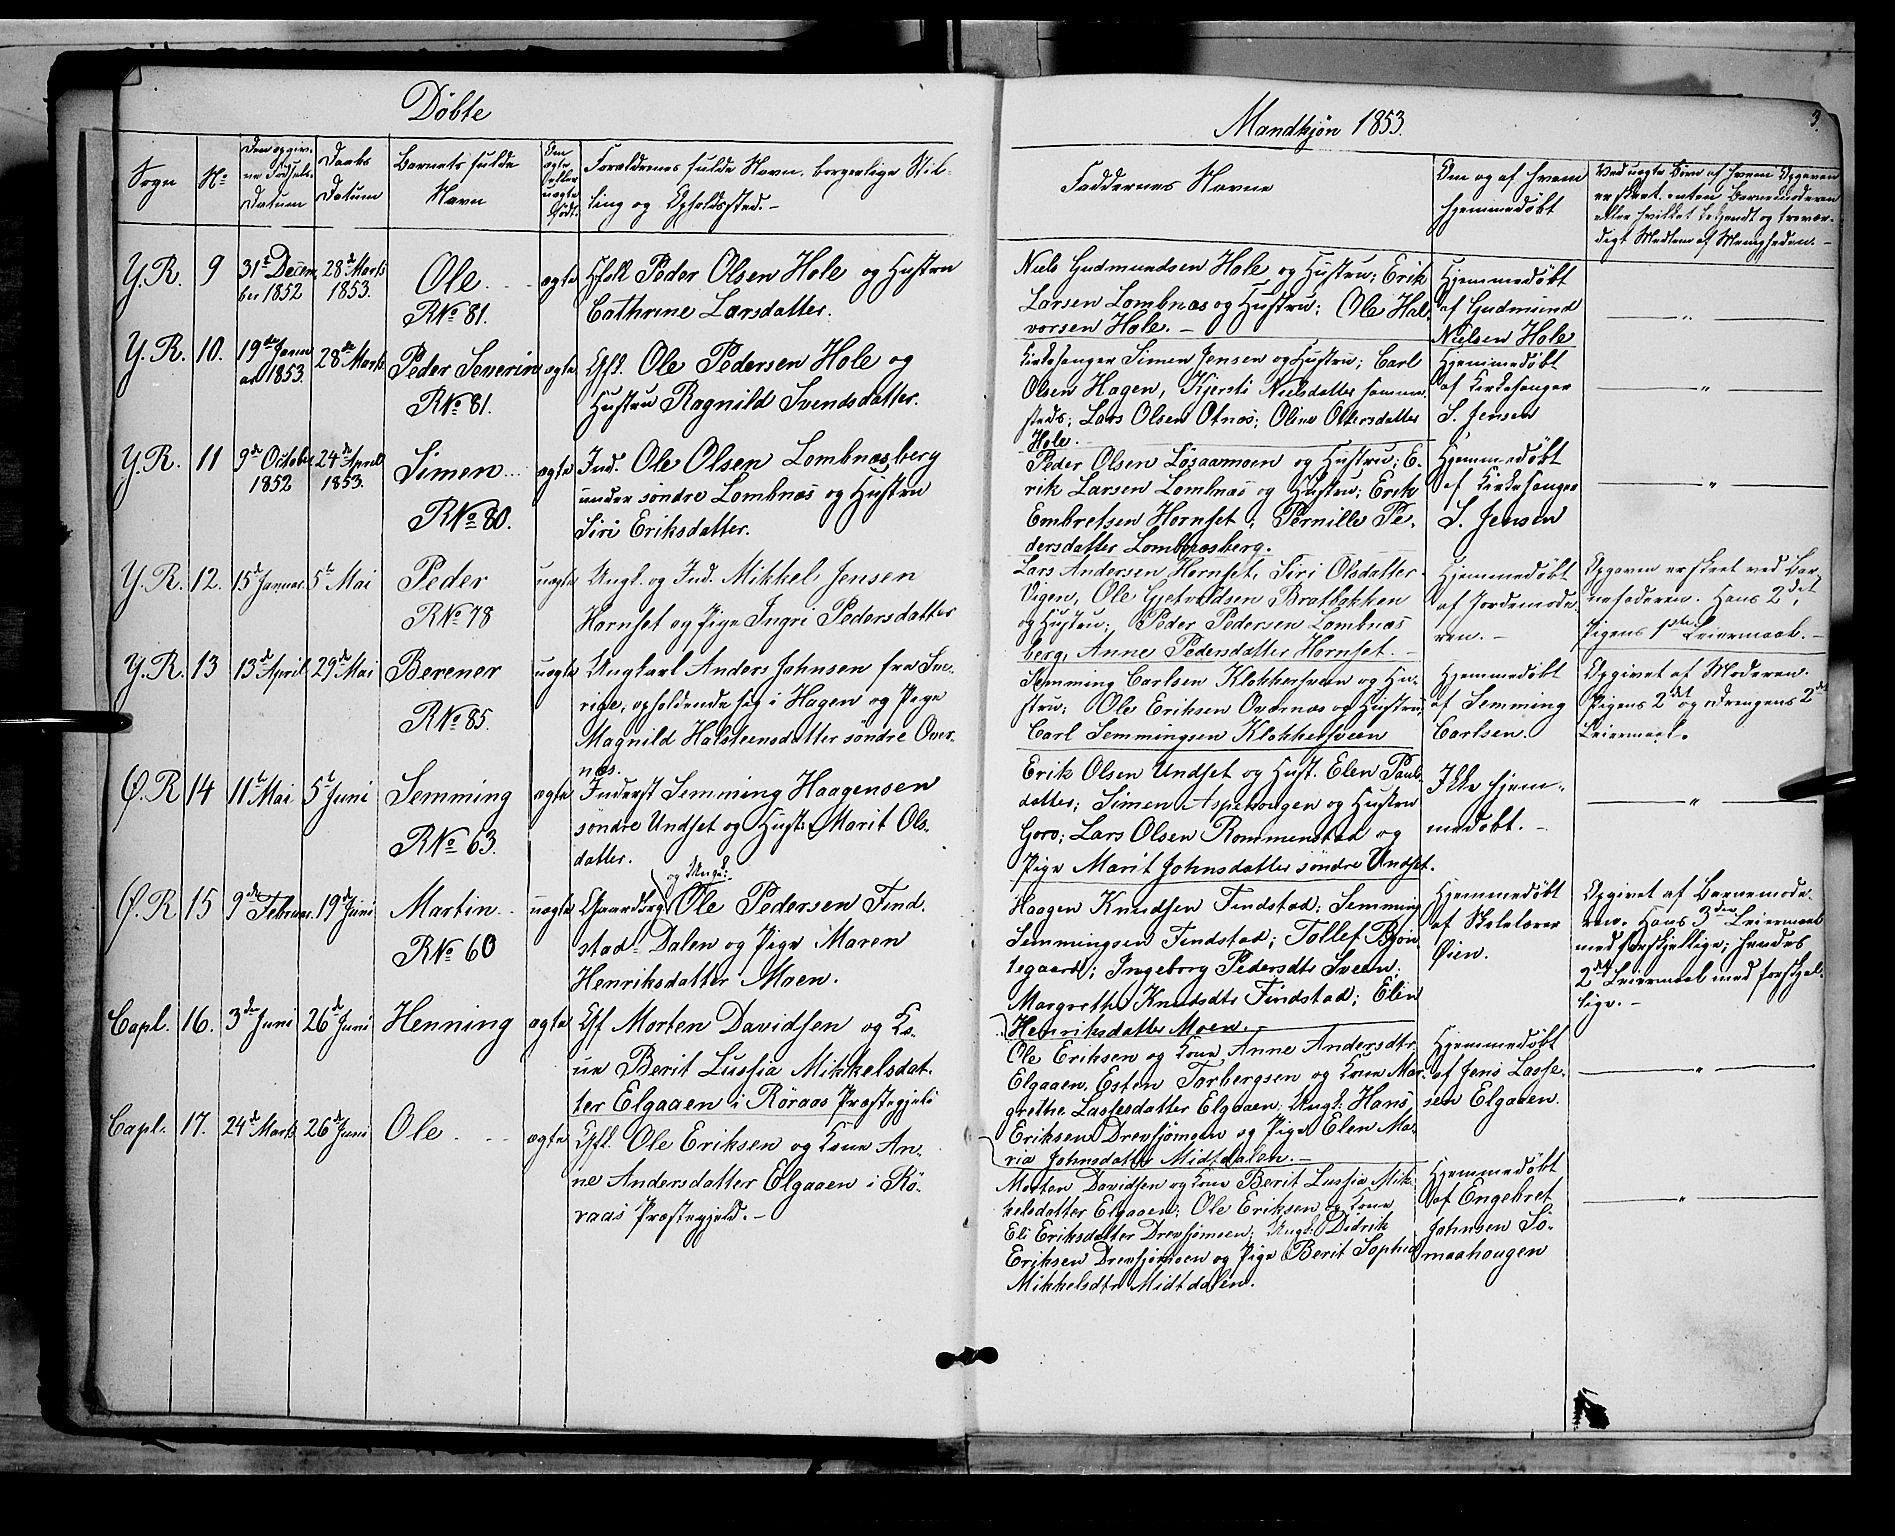 Döbte
Mandkjön 1853.
3.
Sogn
No
Den opgiv-
ne Fødsels-
Datum
Daabs
Datum
Barnets fulde
Navn
Om
ægte
eller
uægte
født.
Forældrenes fulde Navn, borgerlige Stil-
ling og Opholdssted.-
Faddernes Navne
Om og af hvem
hjemmedøbt
Ved uægte Børn af hvem Opgaven
er skeet, enten Barnemoderen
eller hvilket bekjendt og trovær-
digt Medlem af Menigheden.-
Y.R. 9 31te Decem-
ber 1852
28de Marts
1853.
Ole
RNo 81.
ægte
Gfolk Peder Olsen Hole og Hustru
Cathrine Larsdatter.
Niels Gudmundsen Hole og Hustru; Erik
Larsen Lombnæs og Hustru; Ole Hal-
vorsen Hole.-
Hjemmedøbt
af Gudmund
Nielsen Hole
Y.R. 10. 19de Janu-
ar 1853.
28de Marts
Peder Severin
RNo 81.
ægte
Gfl. Ole Pedersen Hole og
Hustru Ragnild Svendsdatter.
Kirkesanger Simen Jensen og Hustru; Carl
Olsen Hagen, Kjersti Nielsdatter sammen-
steds; Lars Olsen Otnæs; Oline Ottersdatter
Hole.
Hjemmedøbt
af Kirkesanger
S. Jensen
Y.R. 11 9de October
1852
24de April
1853.
Simen
RNo 80.
ægte
Ind. Ole Olsen Lombnæsberg
under søndre Lombnæs og Hustru
Siri Eriksdatter.
Peder Olsen Løsaamoen og Hustru; E-
rik Larsen Lombnæs og Hustru; Erik
Embretsen Hornset; Pernille Pe-
dersdatter Lombnæsberg.
Hjemmedøbt
af Kirkesanger
S. Jensen
Y.R. 12. 15de Januar 5te Mai
Peder
RNo 78
uægte
Ungk. og Ind. Mikkel Jensen
Hornset og Pige Ingri Pedersdatter
Lars Andersen Hornset, Siri Olsdatter
Vigen, Ole Gjetvoldsen Bratbakken
og Hustru; Peder Pedersen Lombnæs
berg, Anne Pedersdatter Hornset.-
Hjemmedøbt
af Jordemode-
ren.-
Opgaven er skeet ved Bar-
nefaderen. Hans 2det,
Pigens 1ste Leiermaal.-
Y.R. 13 13de April 29de Mai
Berener
RNo 85.
uægte
Ungkarl Anders Johnsen fra Sve-
rige, opholdende sig i Hagen og Pige
Magnild Halsteensdatter søndre Øver-
næs.
Semming Carlsen Klokkersveen og Hu-
stru; Ole Eriksen Øvernæs og Hustru,
Carl Semmingsen Klokkersveen
Hjemmedøbt
af Semming
Carlsen.
Opgivet af Moderen.
Pigens 2det og Drengens 2det
Leiermaal.
Ø.R 14 11te Mai 5te Juni
Semming
RNo 63.
ægte
Inderst Semming Haagensen
søndre Undset og Hust. Marit Ols-
datter.
Erik Olsen Undset og Hust. Elen Pauls-
datter; Simen Aspehougen og Hustru
Goro; Lars Olsen Rommenstad og
Pige Marit Johnsdatter søndre Undset.
Ikke hjem-
medøbt.-
Ø.R 15 9de Februar 19de Juni
Martin
RNo 60
uægte
og Ungk:
Gaardbrg. Ole Pedersen Find-
stad-Dalen og Pige Maren
Henriksdatter Moen.
Haagen Knudsen Findstad; Semming
Semmingsen Findstad; Tollef Bjøn-
tegaard; Ingeborg Pedersdtr Sveen;
Margrethe Knudsdtr Findstad; Elen
Henriksdatter Moen.
Hjemmedøbt
af Skolelærer
Øien.
Opgivet af Barnemode-
ren. Hans 3die Leiermaal
med forskjellige; hendes
2det Leiermaal med forskjel-
lige.-
Capl. 16. 3de Juni 26de Juni
Henning
ægte
Gf Morten Davidsen og Ko-
ne Berit Lussia Mikkelsdat-
ter Elgaaen i Röraas Præstegjeld
Ole Eriksen og Kone Anne Andersdtr
Elgaaen, Esten Torbergsen og Kone Mar-
grethe Lassesdatter Elgaaen; Ungk. Hans
Eriksen Drevsjømoen og Pige Elen Ma-
ria Johnsdatter Midtdalen.-
Hjemmedøbt
af Jens Lasse-
sen Elgaaen.
Capl. 17. 24de Marts 26de Juni
Ole
ægte
Gfl. Ole Eriksen og Kone An-
ne Andersdatter Elgaaen i Rö-
raas Præstegjeld.-
Morten Davidsen og Kone Berit Lussia Mik-
kelsdatter Elgaaen; Ole Eriksen og Kone
Eli Eriksdatter Drevsjømoen; Ungk. Didrik
Eriksen Drevsjømoen og Pige Berit Sophia
Mikkelsdtr Midtdalen.
Hjemmedøbt
af Engebret
Johnsen Sö-
maahougen